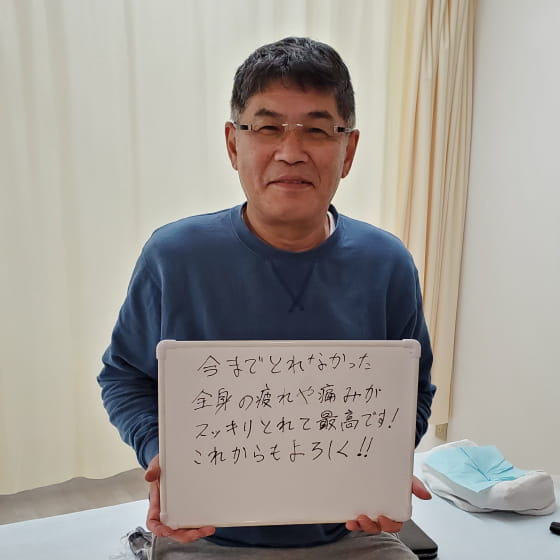 今までとれなかった
全身の疲れや痛みが
スッキリとれて最高です!
これからもよろしく!!